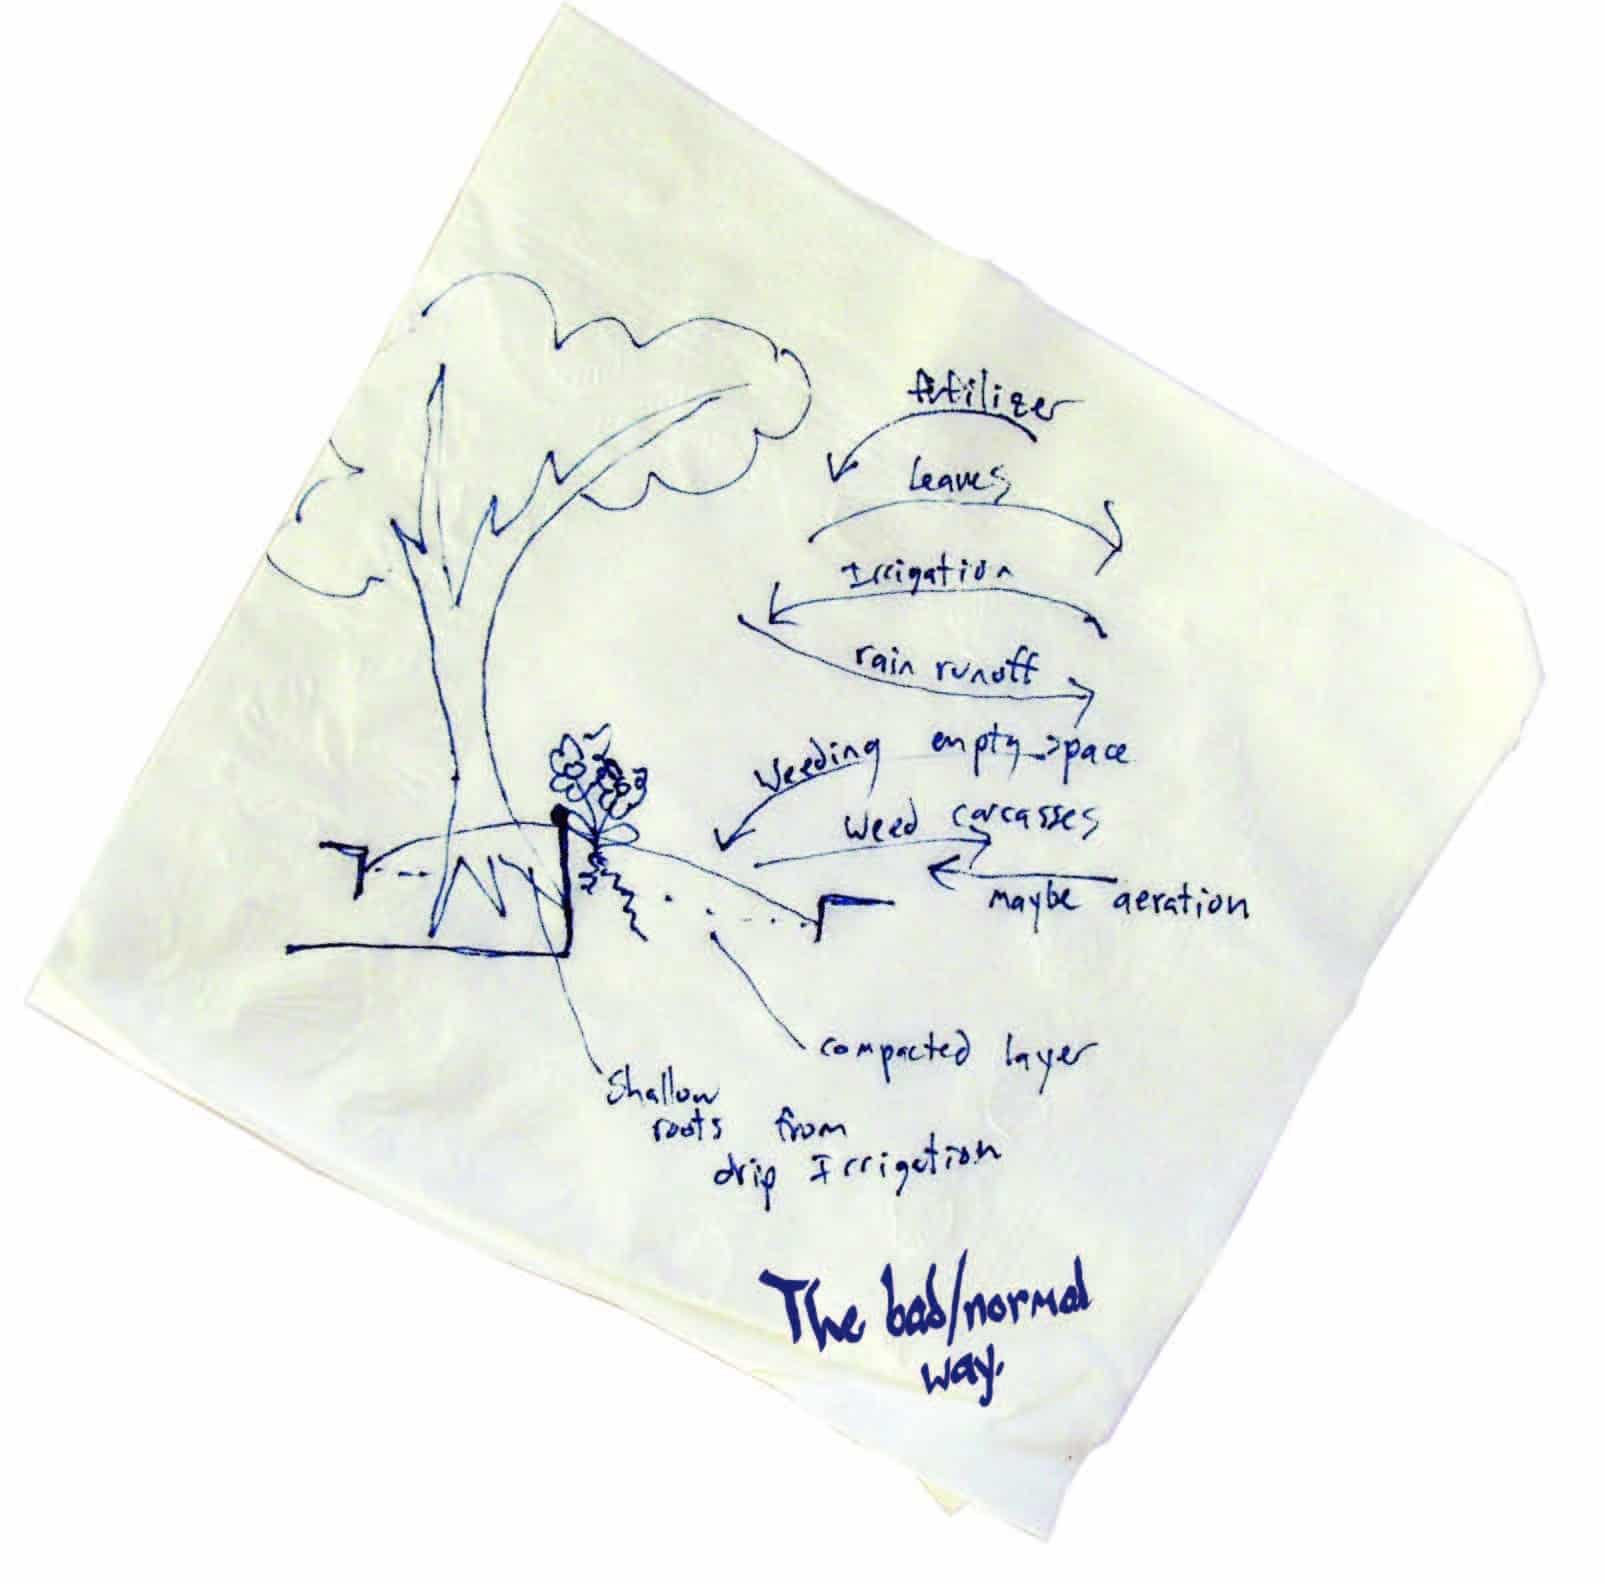 fertilizer
leaves
Irrigation
rain runoff
Weeding empty space
weed carcasses
maybe aeration
compacted layer
Shallow
roots from
drip Irrigation
The bad/normal
way.